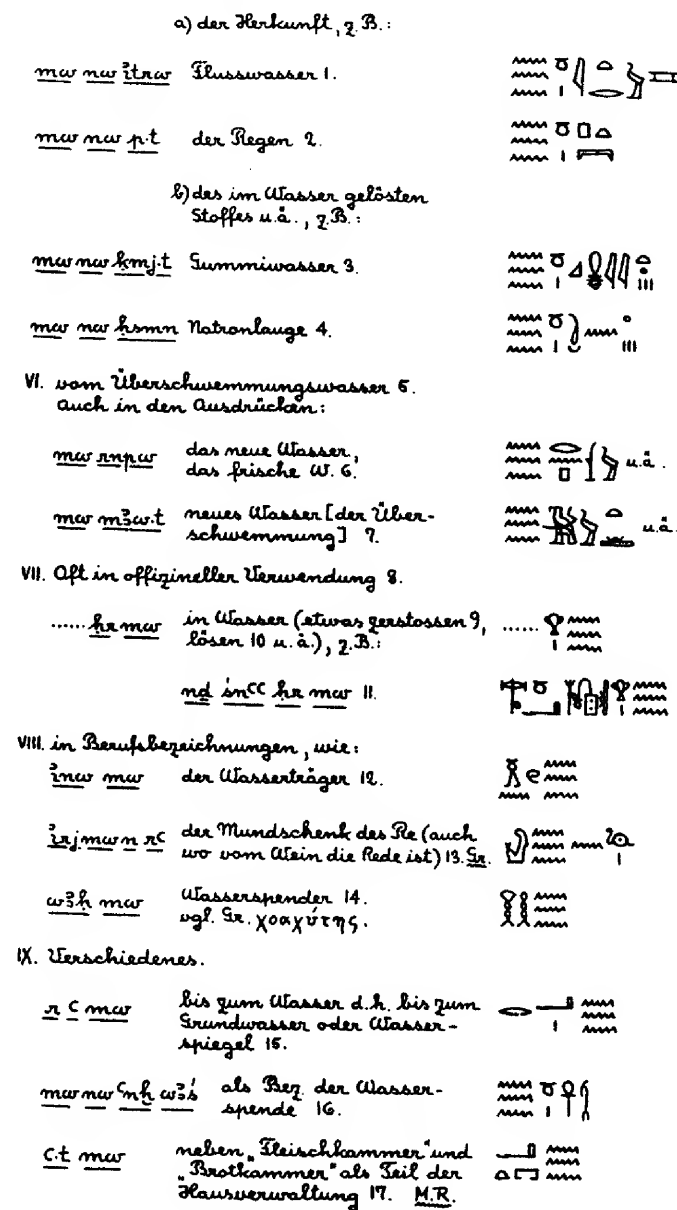 a) der Herkunft, z.B.:
mw nw ı͗trw Flusswasser 1.
mw nw p.t der Regen 2.
b) des im Wasser gelösten
Stoffes u.ä., z.B.:
mw nw ḳmj.t Gummiwasser 3.
mw nw ḥsmn Natronlauge 4.
VI. vom Überschwemmungswasser 5.
auch in den Ausdrücken:
mw rnpw das neue Wasser,
das frische W. 6. u.ä.
mw mꜣw.t neues Wasser [der Über-
schwemmung] 7. u.ä.
VII. Oft in offizineller Verwendung 8.
...... ḥr mw in Wasser (etwas zerstossen 9, ......
lösen 10 u.ä.), z.B.:
nḏ śnꜥꜥ ḥr mw 11.
VIII. in Berufsbezeichnungen, wie:
ı͗nw mw der Wasserträger 12.
ı͗rj mw n rꜥ der Mundschenk des Re (auch
wo vom Wein die Rede ist) 13. Gr.
wꜣḥ mw Wasserspender 14.
vgl. Gr. χοαχύτης.
IX. Verschiedenes.
r ꜥ mw bis zum Wasser d.h. bis zum
Grundwasser oder Wasser-
spiegel 15.
mw nw ꜥnḫ wꜣś als Bez. der Wasser-
spende 16.
ꜥ.t mw neben „Fleischkammer“ und
„Brotkammer“ als Teil der
Hausverwaltung 17. M.R.